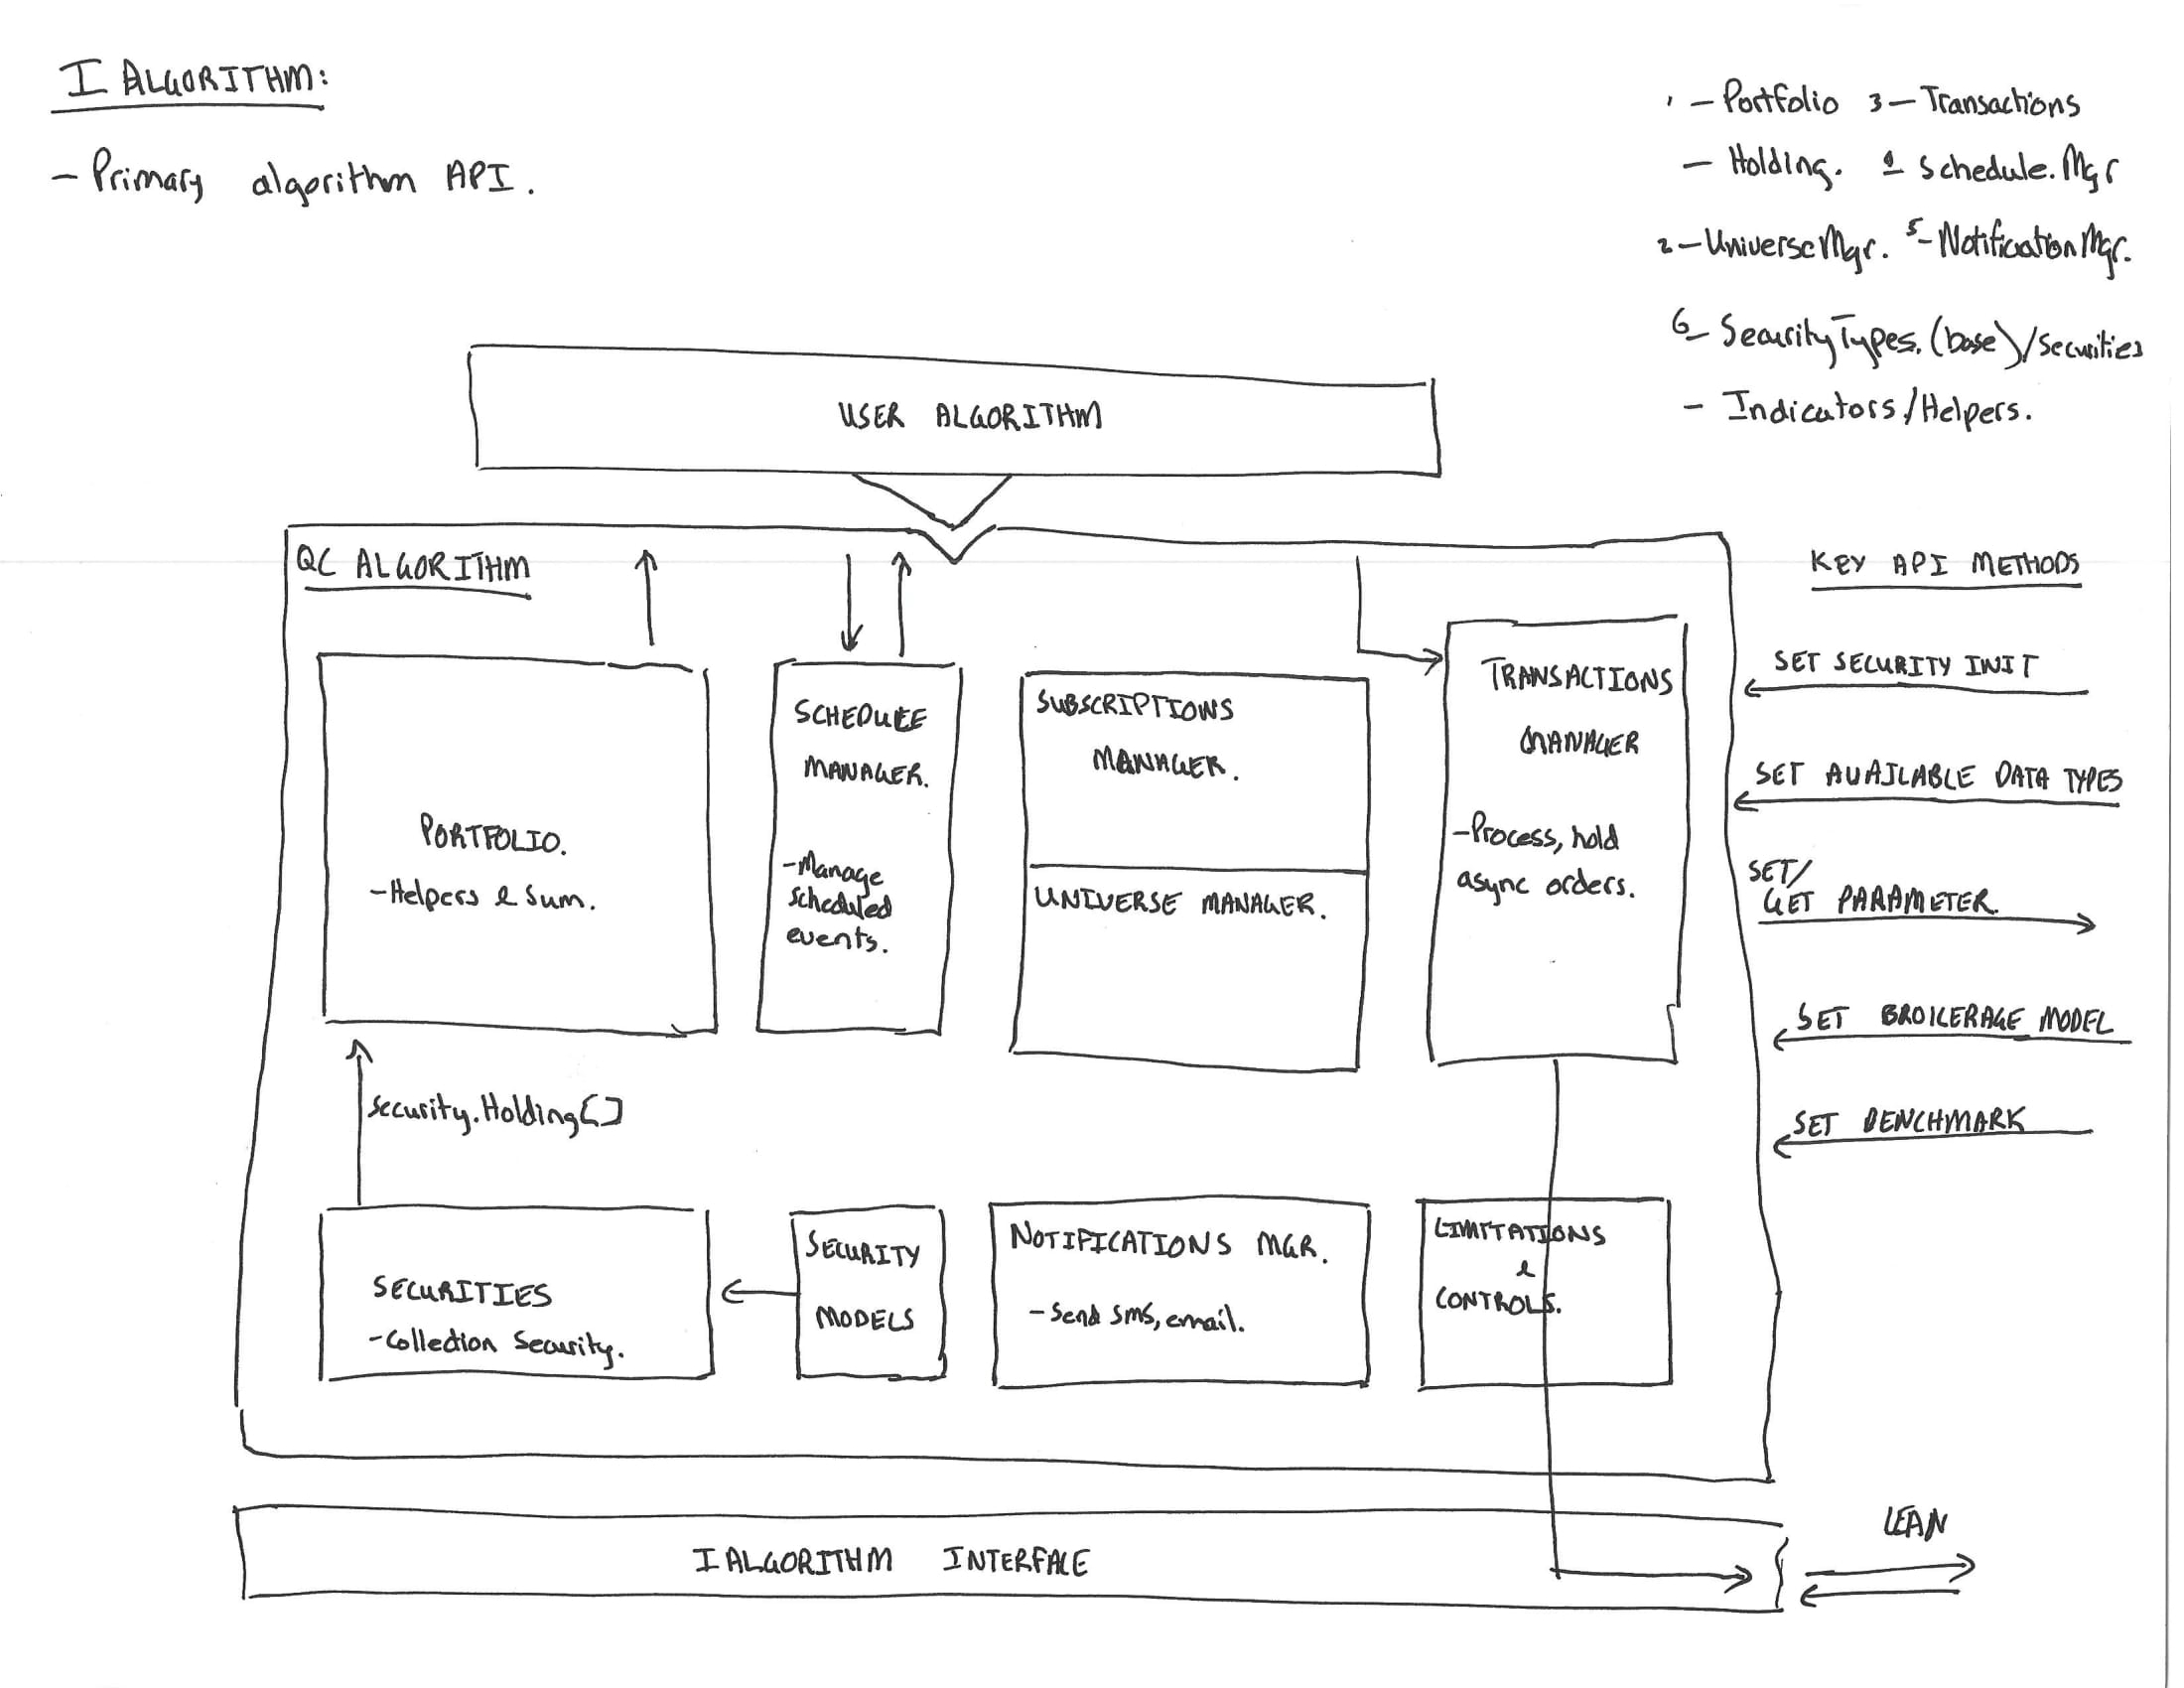 I ALGORITHM:
- Primary algorithm API.
1 - Portfolio 3 - Transactions
- Holding. 1 Schedule.Mgr
2 - UniverseMgr. 5 - NotificationMgr.
6 - SecurityTypes.(base)/securities
- Indicators/Helpers.
USER ALGORITHM
QC ALGORITHM
PORTFOLIO.
- Helpers & Sum.
SCHEDULE
MANAGER.
- Manage
scheduled
events.
SUBSCRIPTIONS
MANAGER.
UNIVERSE MANAGER.
TRANSACTIONS
MANAGER
- Process, hold
async orders.
KEY API METHODS
SET SECURITY INIT
SET AVAILABLE DATA TYPES
SET/
GET PARAMETER
SET BROKERAGE MODEL
SET BENCHMARK
security.Holding[]
SECURITIES
- Collection Security.
SECURITY
MODELS
NOTIFICATIONS MGR.
- Send sms, email.
LIMITATIONS
&
CONTROLS.
I ALGORITHM INTERFACE
LEAN